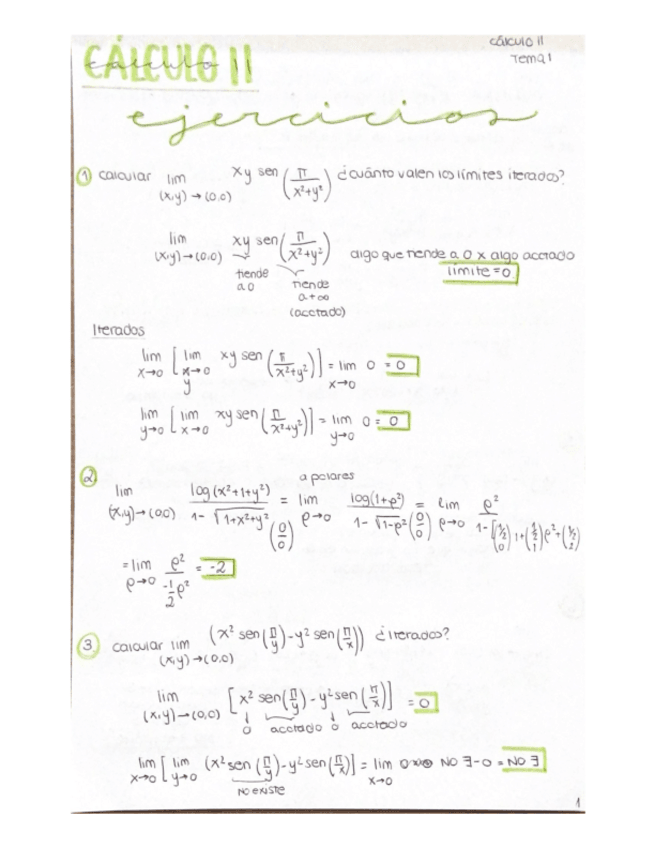 cálculo II
Tema 1
CÁLCULO II
cálculo II
ejercicios
① calcular lim (x,y)→(0,0) xy sen(π/(x²+y²)) ¿cuánto valen los límites iterados?
lim (x,y)→(0,0) xy sen(π/(x²+y²)) algo que tiende a 0 x algo acotado
tiende a 0
tiende a +∞ (acotado)
límite = 0
Iterados
lim x→0 [lim y→0 xy sen(π/(x²+y²))] = lim x→0 0 = 0
lim y→0 [lim x→0 xy sen(π/(x²+y²))] = lim y→0 0 = 0
② a polares
lim (x,y)→(0,0) log(x²+1+y²)/(1-√(1+x²+y²)) (0/0) = lim ρ→0 log(1+ρ²)/(1-√(1-ρ²)) (0/0) = lim ρ→0 ρ²/(1-[(1/2 0)1+(1/2 1)ρ²+(1/2 2)
= lim ρ→0 ρ²/(-1/2 ρ²) = -2
③ calcular lim (x,y)→(0,0) (x² sen(π/y)-y² sen(π/x)) ¿Iterados?
lim (x,y)→(0,0) [x² sen(π/y)-y² sen(π/x)] = 0
0 acotado 0 acotado
lim x→0 [lim y→0 (x² sen(π/y)-y² sen(π/x)] = lim x→0 NO ∃-0 = NO ∃
NO EXISTE
1